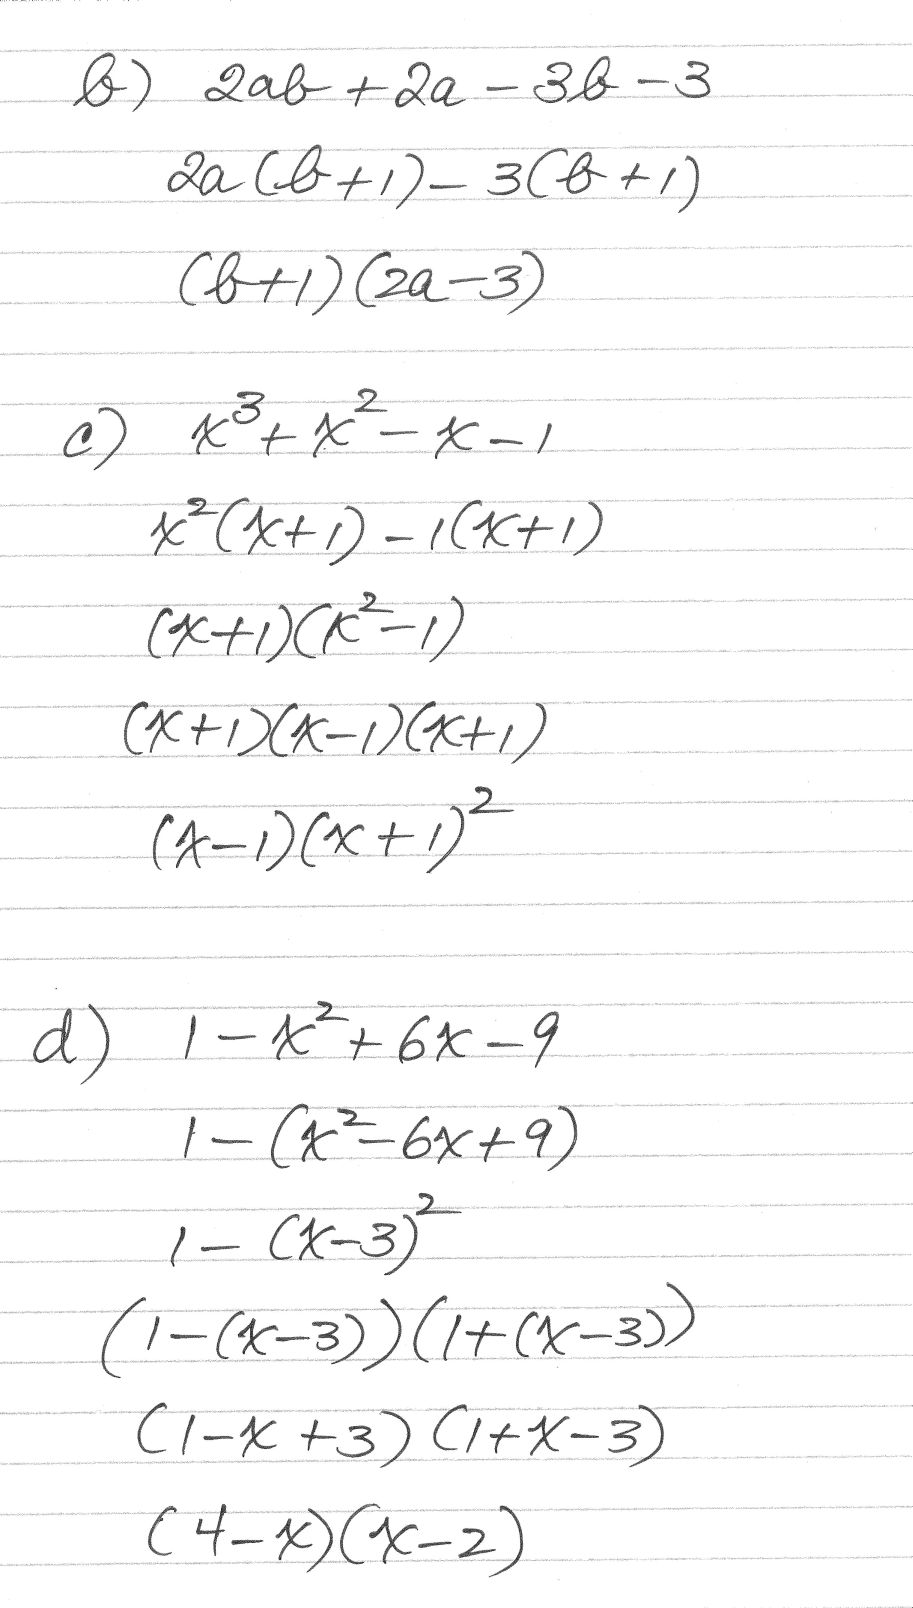 b) 2ab + 2a - 3b - 3
2a(b+1) - 3(b+1)
(b+1)(2a-3)
c) x³ + x² - x - 1
x²(x+1) - 1(x+1)
(x+1)(x²-1)
(x+1)(x-1)(x+1)
(x-1)(x+1)²
d) 1 - x² + 6x - 9
1 - (x² - 6x + 9)
1 - (x-3)²
(1-(x-3))(1+(x-3))
(1-x+3)(1+x-3)
(4-x)(x-2)